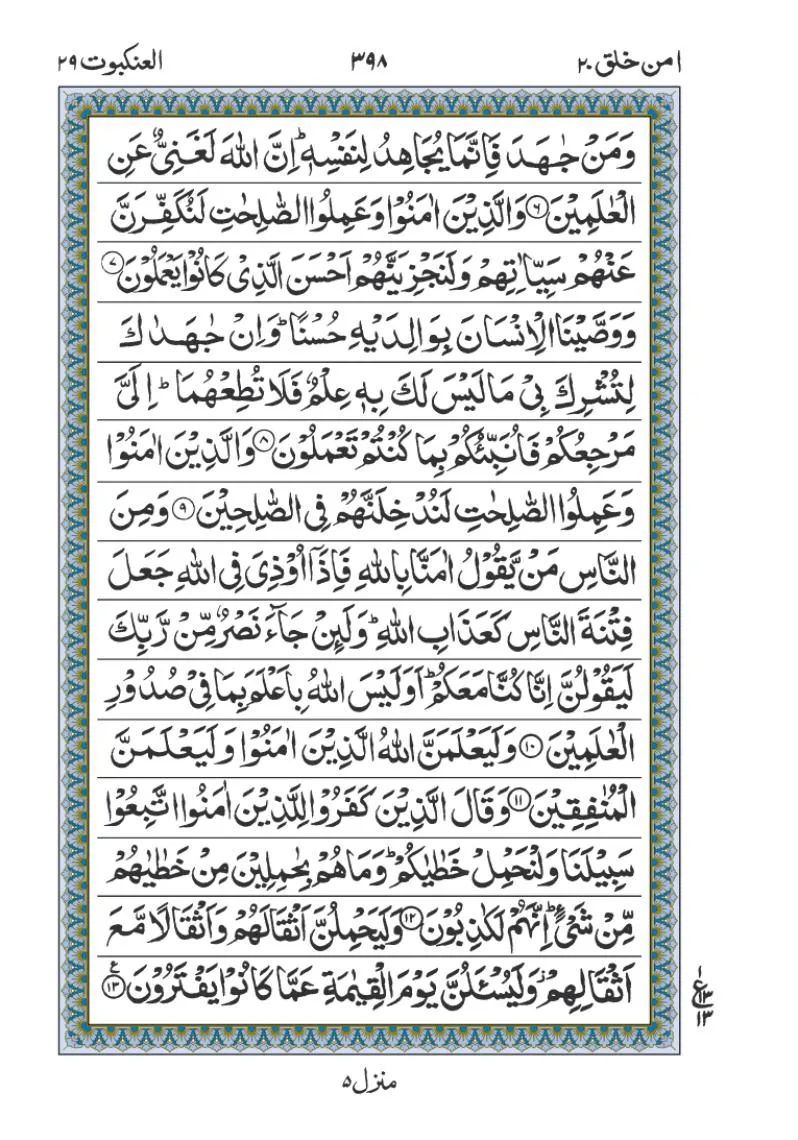 امن خلق ۲۰
۳۹۸
العنكبوت ۲۹
وَمَنْ جٰهَدَ فَاِنَّمَا يُجَاهِدُ لِنَفْسِهٖ ؕ اِنَّ اللّٰهَ لَغَنِىٌّ عَنِ
الْعٰلَمِيْنَ ۶ وَالَّذِيْنَ اٰمَنُوْا وَعَمِلُوا الصّٰلِحٰتِ لَنُكَفِّرَنَّ
عَنْهُمْ سَيِّاٰتِهِمْ وَلَنَجْزِيَنَّهُمْ اَحْسَنَ الَّذِىْ كَانُوْا يَعْمَلُوْنَ ۷
وَوَصَّيْنَا الْاِنْسَانَ بِوَالِدَيْهِ حُسْنًا ؕ وَاِنْ جٰهَدٰكَ
لِتُشْرِكَ بِىْ مَا لَيْسَ لَكَ بِهٖ عِلْمٌ فَلَا تُطِعْهُمَا ؕ اِلَىَّ
مَرْجِعُكُمْ فَاُنَبِّئُكُمْ بِمَا كُنْتُمْ تَعْمَلُوْنَ ۸ وَالَّذِيْنَ اٰمَنُوْا
وَعَمِلُوا الصّٰلِحٰتِ لَنُدْخِلَنَّهُمْ فِى الصّٰلِحِيْنَ ۹ وَمِنَ
النَّاسِ مَنْ يَّقُوْلُ اٰمَنَّا بِاللّٰهِ فَاِذَاۤ اُوْذِىَ فِى اللّٰهِ جَعَلَ
فِتْنَةَ النَّاسِ كَعَذَابِ اللّٰهِ ؕ وَلَئِنْ جَآءَ نَصْرٌ مِّنْ رَّبِّكَ
لَيَقُوْلُنَّ اِنَّا كُنَّا مَعَكُمْ ؕ اَوَلَيْسَ اللّٰهُ بِاَعْلَمَ بِمَا فِىْ صُدُوْرِ
الْعٰلَمِيْنَ ۱۰ وَلَيَعْلَمَنَّ اللّٰهُ الَّذِيْنَ اٰمَنُوْا وَلَيَعْلَمَنَّ
الْمُنٰفِقِيْنَ ۱۱ وَقَالَ الَّذِيْنَ كَفَرُوْا لِلَّذِيْنَ اٰمَنُوا اتَّبِعُوْا
سَبِيْلَنَا وَلْنَحْمِلْ خَطٰيٰكُمْ ؕ وَمَا هُمْ بِحٰمِلِيْنَ مِنْ خَطٰيٰهُمْ
مِّنْ شَىْءٍ ؕ اِنَّهُمْ لَكٰذِبُوْنَ ۱۲ وَلَيَحْمِلُنَّ اَثْقَالَهُمْ وَاَثْقَالًا مَّعَ
اَثْقَالِهِمْ ز وَلَيُسْئَلُنَّ يَوْمَ الْقِيٰمَةِ عَمَّا كَانُوْا يَفْتَرُوْنَ ۱۳ ع
۱
ع ۱۳
۱۳
منزل ۵